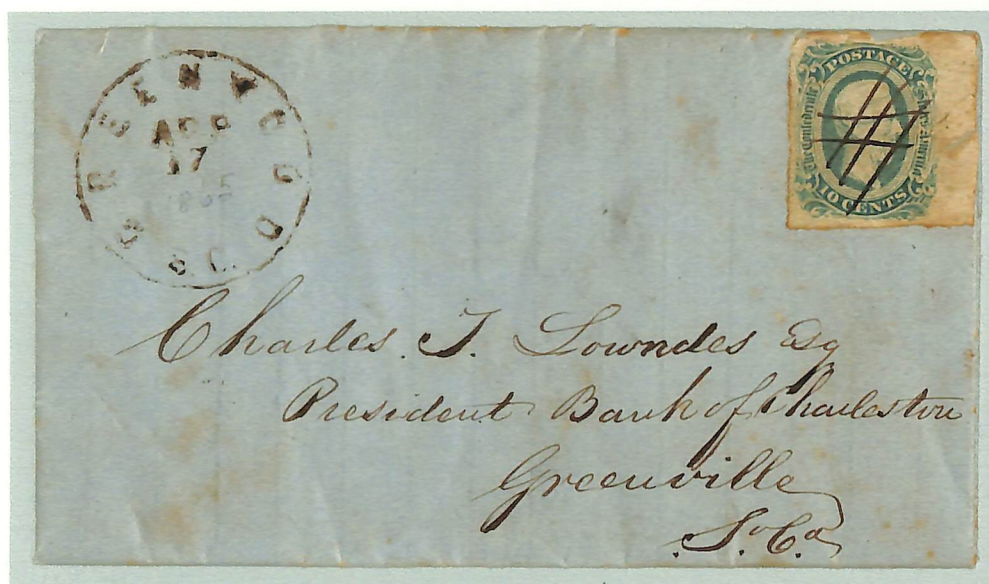 GREENWOOD
APR
17
S.C.
POSTAGE
The Confederate
States of America
10 CENTS
Charles T. Lowndes Esq
President Bank of Charleston
Greenville
So. Ca